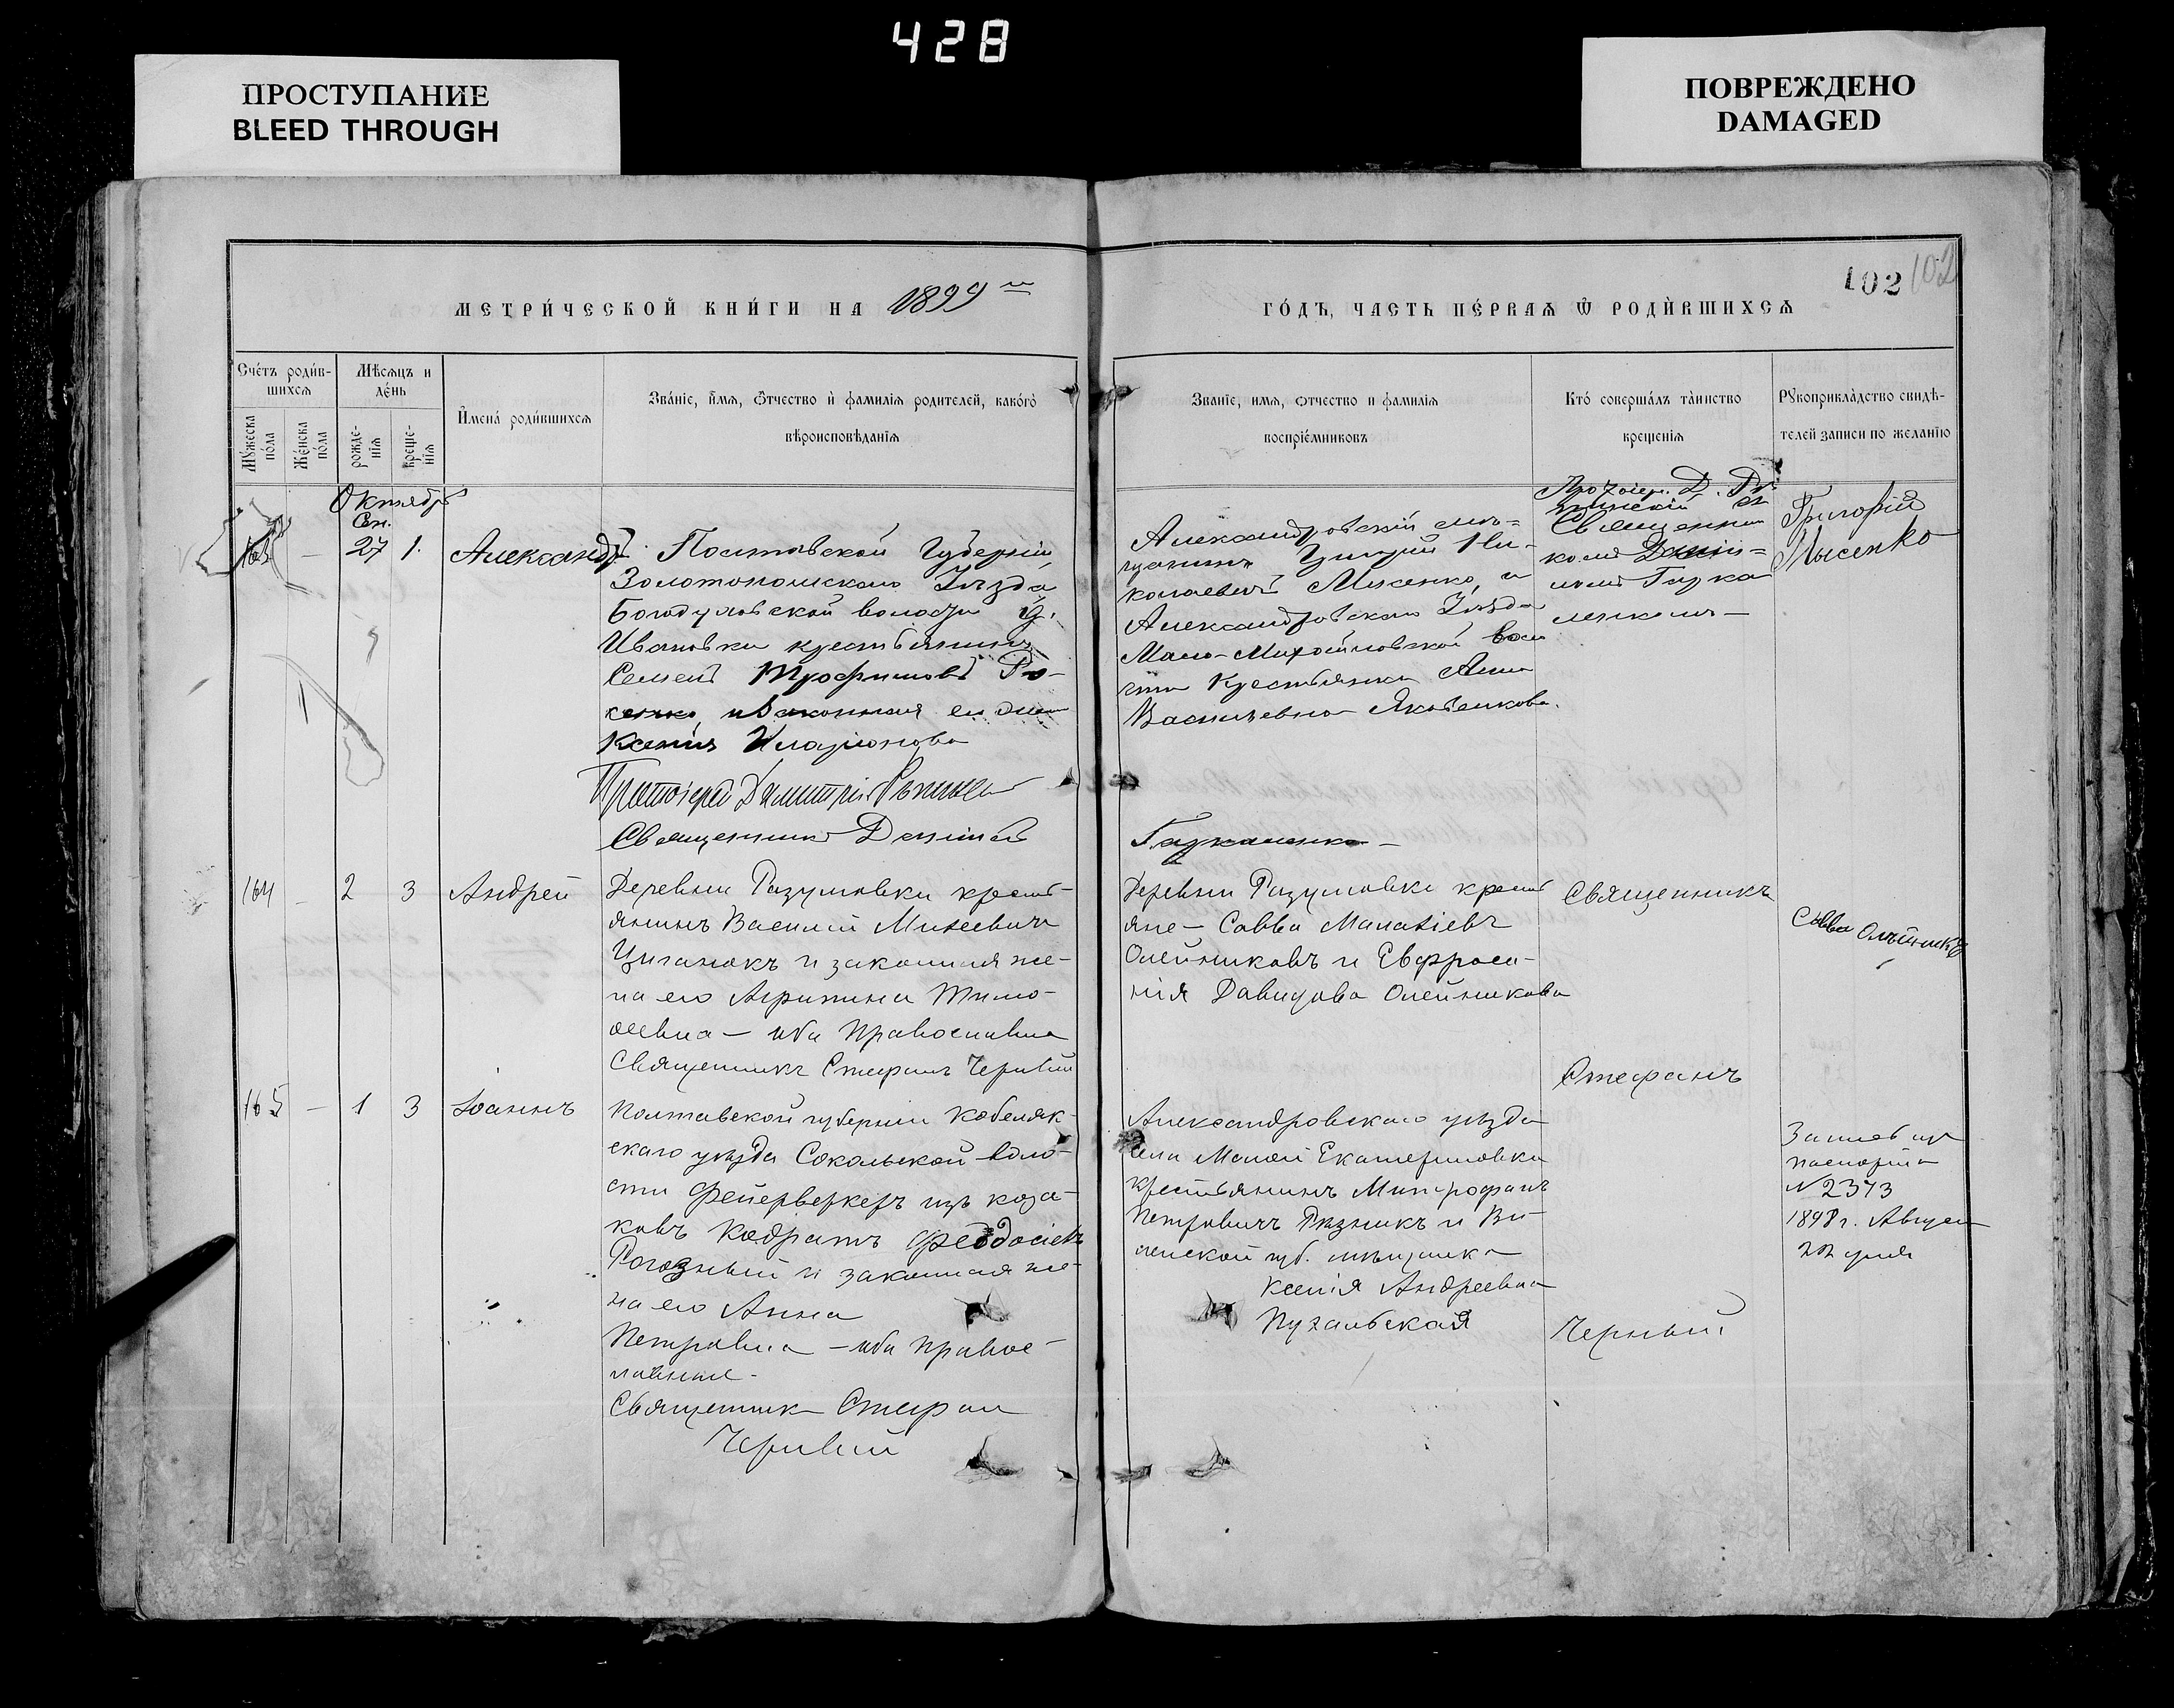 428
ПРОСТУПАНИЕ
BLEED THROUGH
ПОВРЕЖДЕНО
DAMAGED
102 102
МЕТРИ́ЧЕСКОЙ КНИ́ГИ НА 1899
ГО́ДЪ, ЧАСТЬ ПЕ́РВАЯ Ѿ РОДИ́ВШИХСЯ
Сче́тъ роди́в-
шихся
Мѣсяцъ и
де́нь
Му́жеска по́ла
Же́нска по́ла
рожде-
нія
креще-
нія
И́мена́ роди́вшихся
Зва́ніе, и́мя, ѻ́тчество и҆ фамилія родителей, како́гѡ
вѣроисповѣданія
Званіе, имя, ѻтчество и фамилія
воспріе́мниковъ
Кто́ соверша́лъ та́инство
крещенія
Рꙋкоприкла́дство свидѣ-
телей записи по желанію
Октябрь
Сен.
27 1. Александръ
Полтавской Губерніи
Золотоношскаго Уѣзда
Богодуховской волости д.
Ивановки крестьянинъ
Семенъ Трофимовъ
и законная его жена
Ксенія Иларіонова
Протоіерей Димитрій
Священникъ Даніилъ
Александровскій мѣ=
щанинъ Григорій Ни-
колаевичъ Лысенко, и
Александровскаго Уѣзда
Мало-Михайловской воло
сти крестьянка Анна
Васильевна Яковенкова.
Протоіер. Д.
Священни
комъ Даніи=
ломъ
Григорій
Лысенко
164 — 2 3 Андрей
Деревни Разумовки кресть-
янинъ Василій Михеевичъ
Циганокъ и законная же-
на его Агрипина Тимо-
ѳеевна — оба православные
Священникъ Стефанъ
Деревни Разумовки кресть
яне — Савва Малахіевъ
Олейниковъ и Евфроси-
нія Давидова Олейникова
Священникъ
Савва Олѣйникъ
Стефанъ
165 — 1 3 Іоаннъ
Полтавской губерніи Кобеляк-
скаго уѣзда Сокольской воло-
сти фейерверкеръ изъ коза-
ковъ Кодратъ Феодосіевъ
Рогозный и законная же-
на его Анна
Петровна — оба правос-
лавные.
Священникъ Стефанъ
Александровскаго уѣзда
села Малой Екатериновки
крестьянинъ Митрофанъ
Петровичъ Рязникъ и Ви
ленской губ. мѣщанка
Ксенія Андреевна
Пузальская
паспорта
№ 2373
1898 г. Август
22 дня